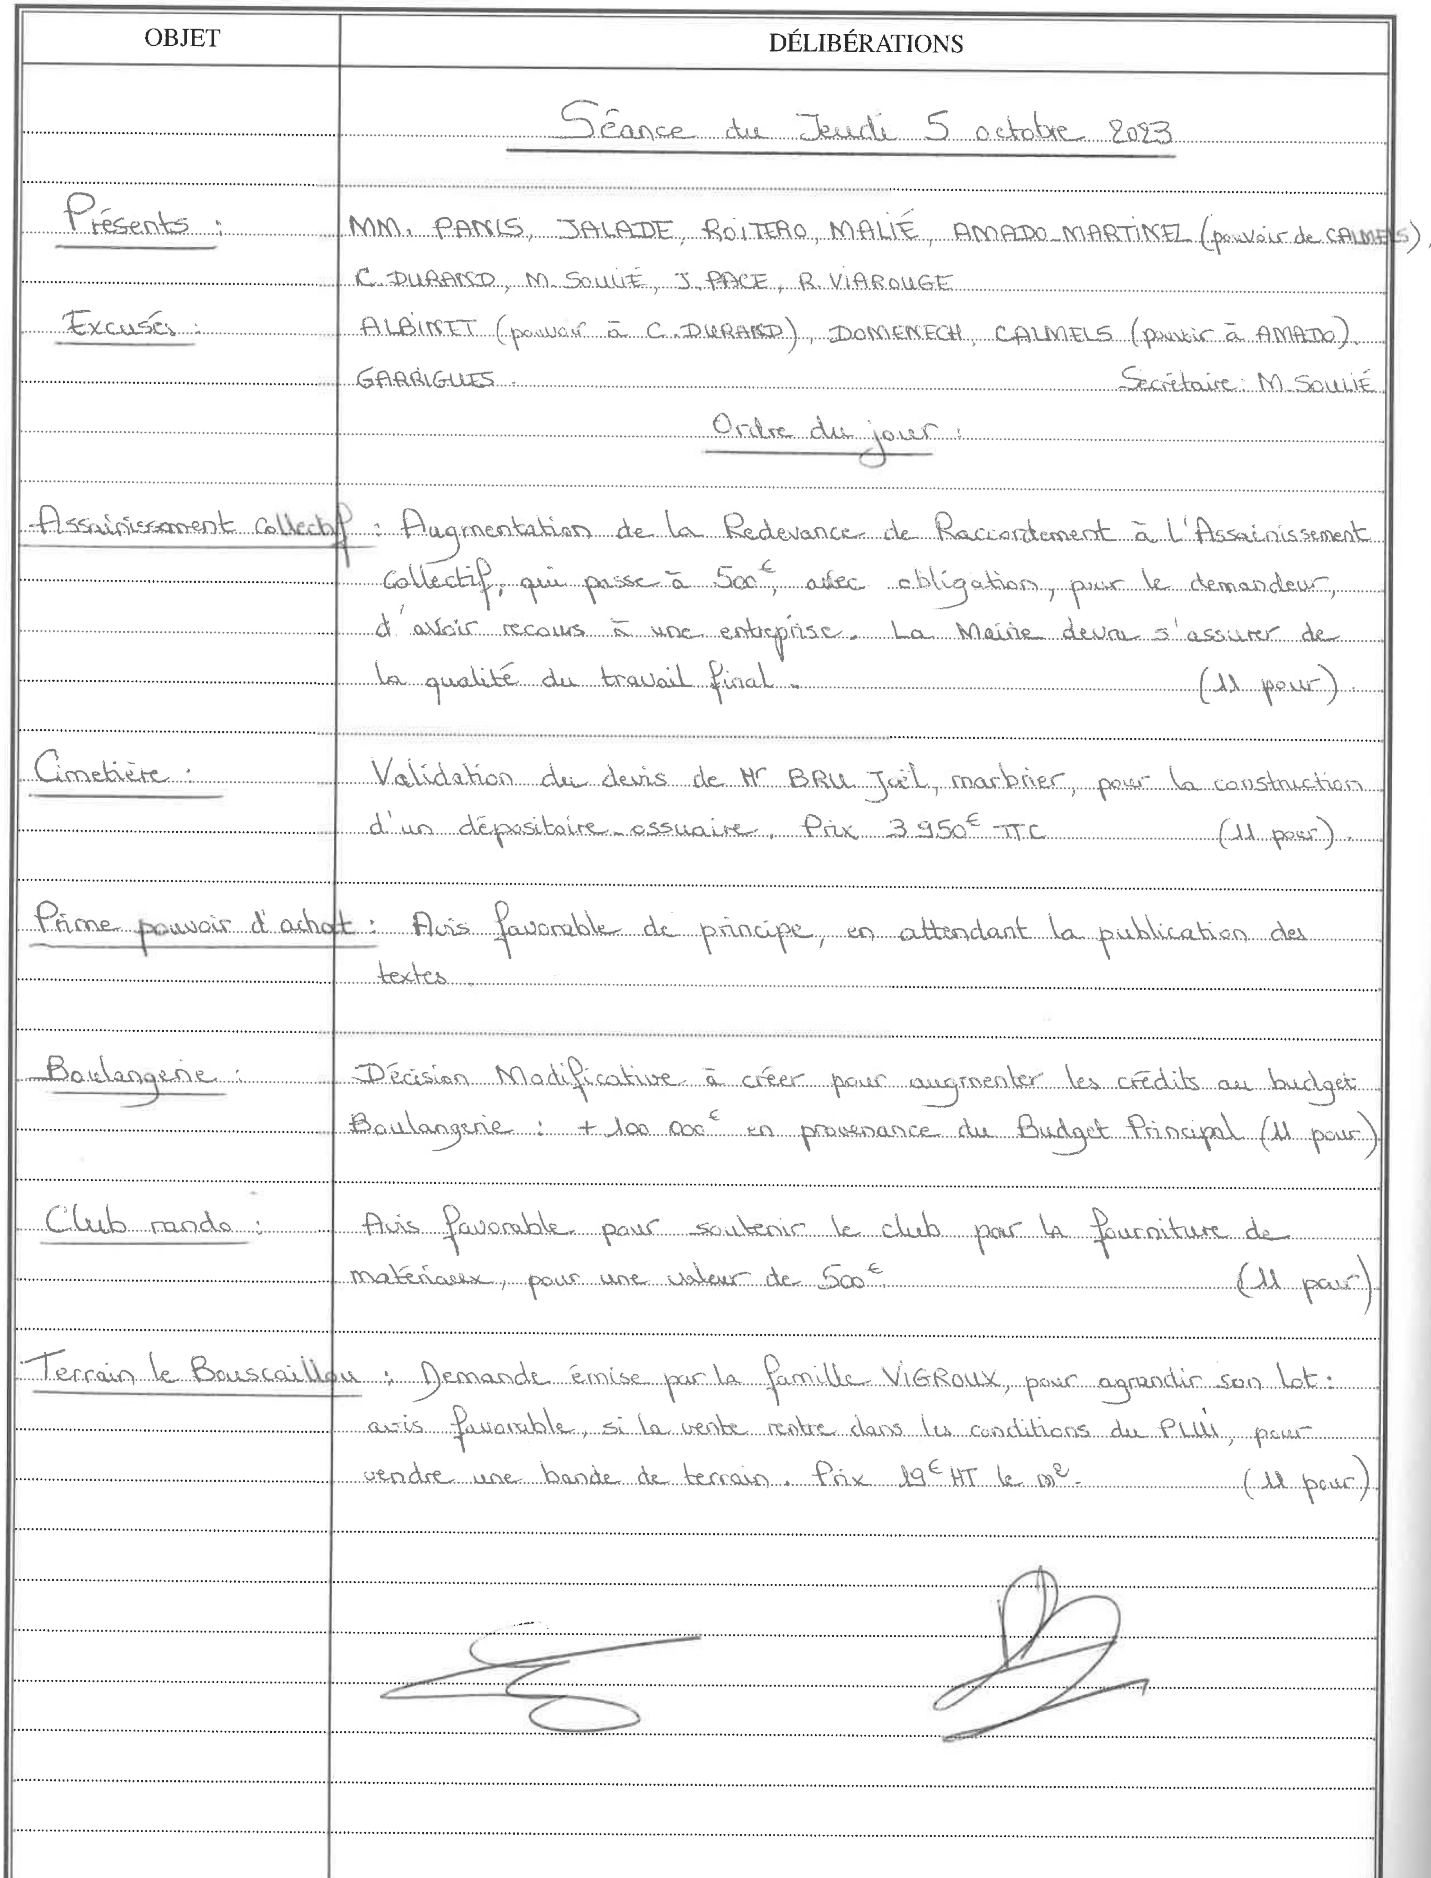 OBJET DÉLIBÉRATIONS
Séance du Jeudi 5 octobre 2023
Présents : MM. PANIS, JALADE, ROITERO, MALIÉ, AMADO-MARTINEZ (pouvoir de CALMELS),
C. DURAND, M. SOULIÉ, J. PACE, R. VIAROUGE
Excusés : ALBINET (pouvoir à C. DURAND), DOMENECH, CALMELS (pouvoir à AMADO).
GARRIGUES. Secrétaire : M. SOULIÉ
Ordre du jour :
Assainissement Collectif : Augmentation de la Redevance de Raccordement à l'Assainissement
Collectif, qui passe à 500€, avec obligation, pour le demandeur,
d'avoir recours à une entreprise. La Mairie devra s'assurer de
la qualité du travail final. (11 pour).
Cimetière : Validation du devis de Mr BRU Joël, marbrier, pour la construction
d'un dépositaire-ossuaire. Prix 3 950€ TTC (11 pour).
Prime pouvoir d'achat : Avis favorable de principe, en attendant la publication des
textes.
Boulangerie : Décision Modificative à créer pour augmenter les crédits au budget
Boulangerie : + 100 000€ en provenance du Budget Principal (11 pour)
Club rando : Avis favorable pour soutenir le club par la fourniture de
matériaux, pour une valeur de 500€ (11 pour)
Terrain le Bouscaillou : Demande émise par la famille VIGROUX, pour agrandir son lot :
avis favorable, si la vente rentre dans les conditions du PLUi, pour
vendre une bande de terrain. Prix 19€ HT le m². (11 pour)